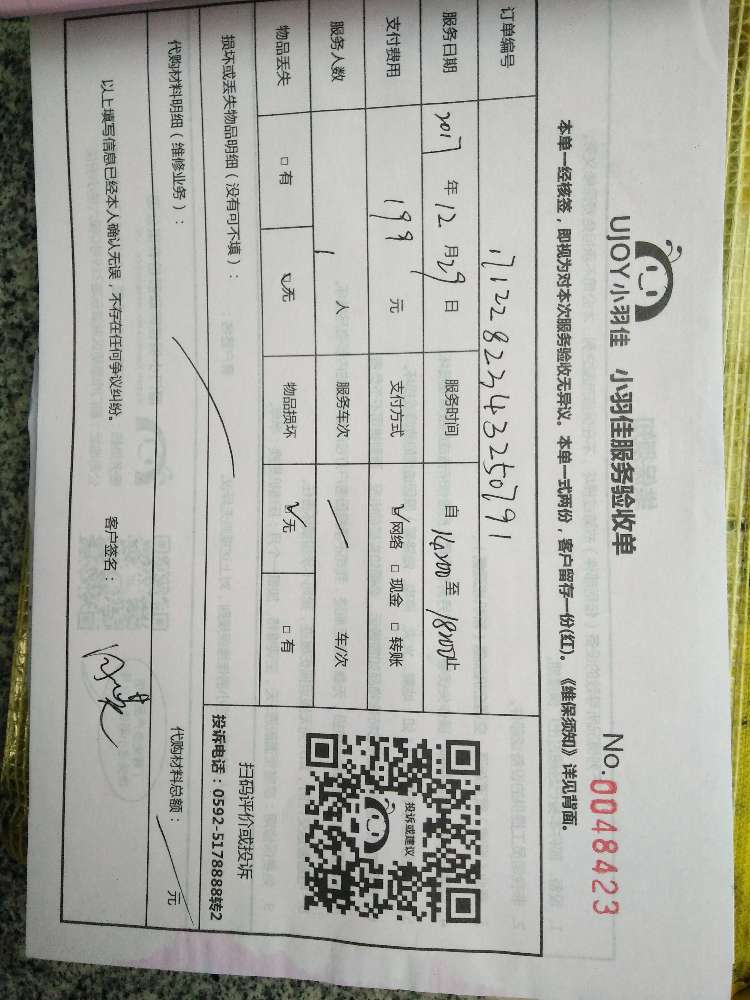 UJOY小羽佳 小羽佳服务验收单 No.0048423
本单一经核签，即视为对本次服务验收无异议。本单一式两份，客户留存一份(红)。《维保须知》详见背面。
订单编号 1712282343250791
服务日期 2017年12月29日 服务时间 自14:00至18:00止
支付费用 199元 支付方式 ☑网络 □现金 □转账
服务人数 1人 服务车次 / 车/次
物品丢失 □有 ☑无 物品损坏 ☑无 □有
投诉或建议
扫码评价或投诉
投诉电话：0592-5178888转2
损坏或丢失物品明细（没有可不填）：
代购材料明细（维修业务）： 代购材料总额： / 元
以上填写信息已经本人确认无误，不存在任何争议纠纷。 客户签名：